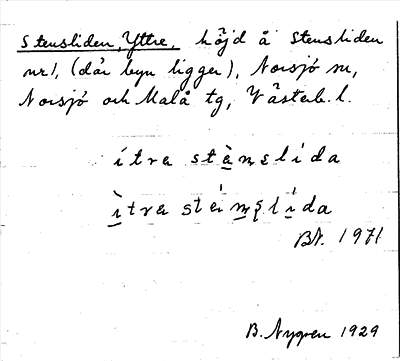 Stensliden, Yttre, höjd å Stensliden
nr 1, (där byn ligger), Norsjö sn,
Norsjö och Malå tg, Västerb. l.
ítra stènslída
ìtra steinslída
BN. 1971
B. Nygren 1929